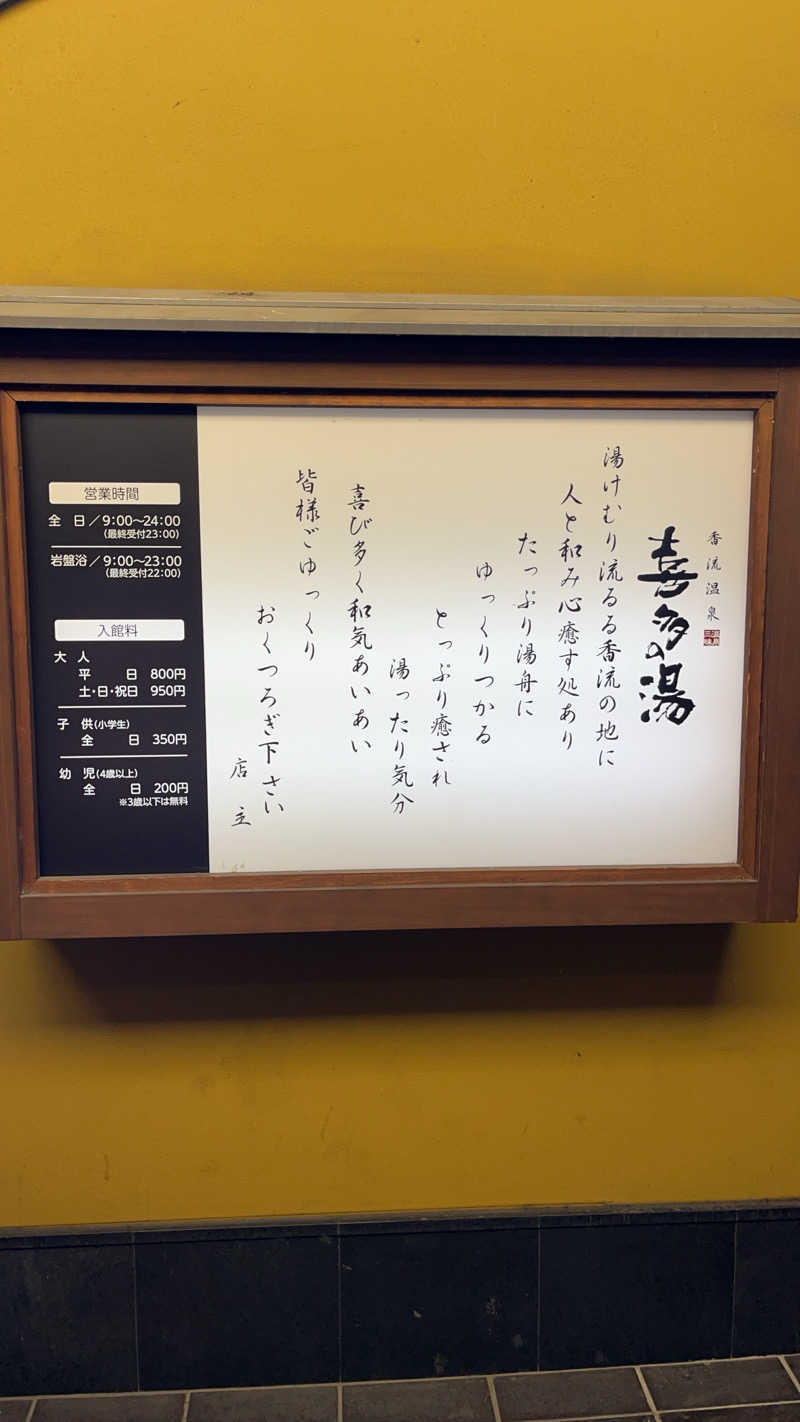 香流温泉
喜多の湯
湯けむり流るる香流の地に
人と和み心癒す処あり
たっぷり湯舟に
ゆっくりつかる
とっぷり癒され
湯ったり気分
喜び多く和気あいあい
皆様ごゆっくり
おくつろぎ下さい
店主
営業時間
全 日/9:00〜24:00
(最終受付23:00)
岩盤浴/9:00〜23:00
(最終受付22:00)
入館料
大 人
平 日 800円
土・日・祝日 950円
子 供(小学生)
全 日 350円
幼 児(4歳以上)
全 日 200円
※3歳以下は無料